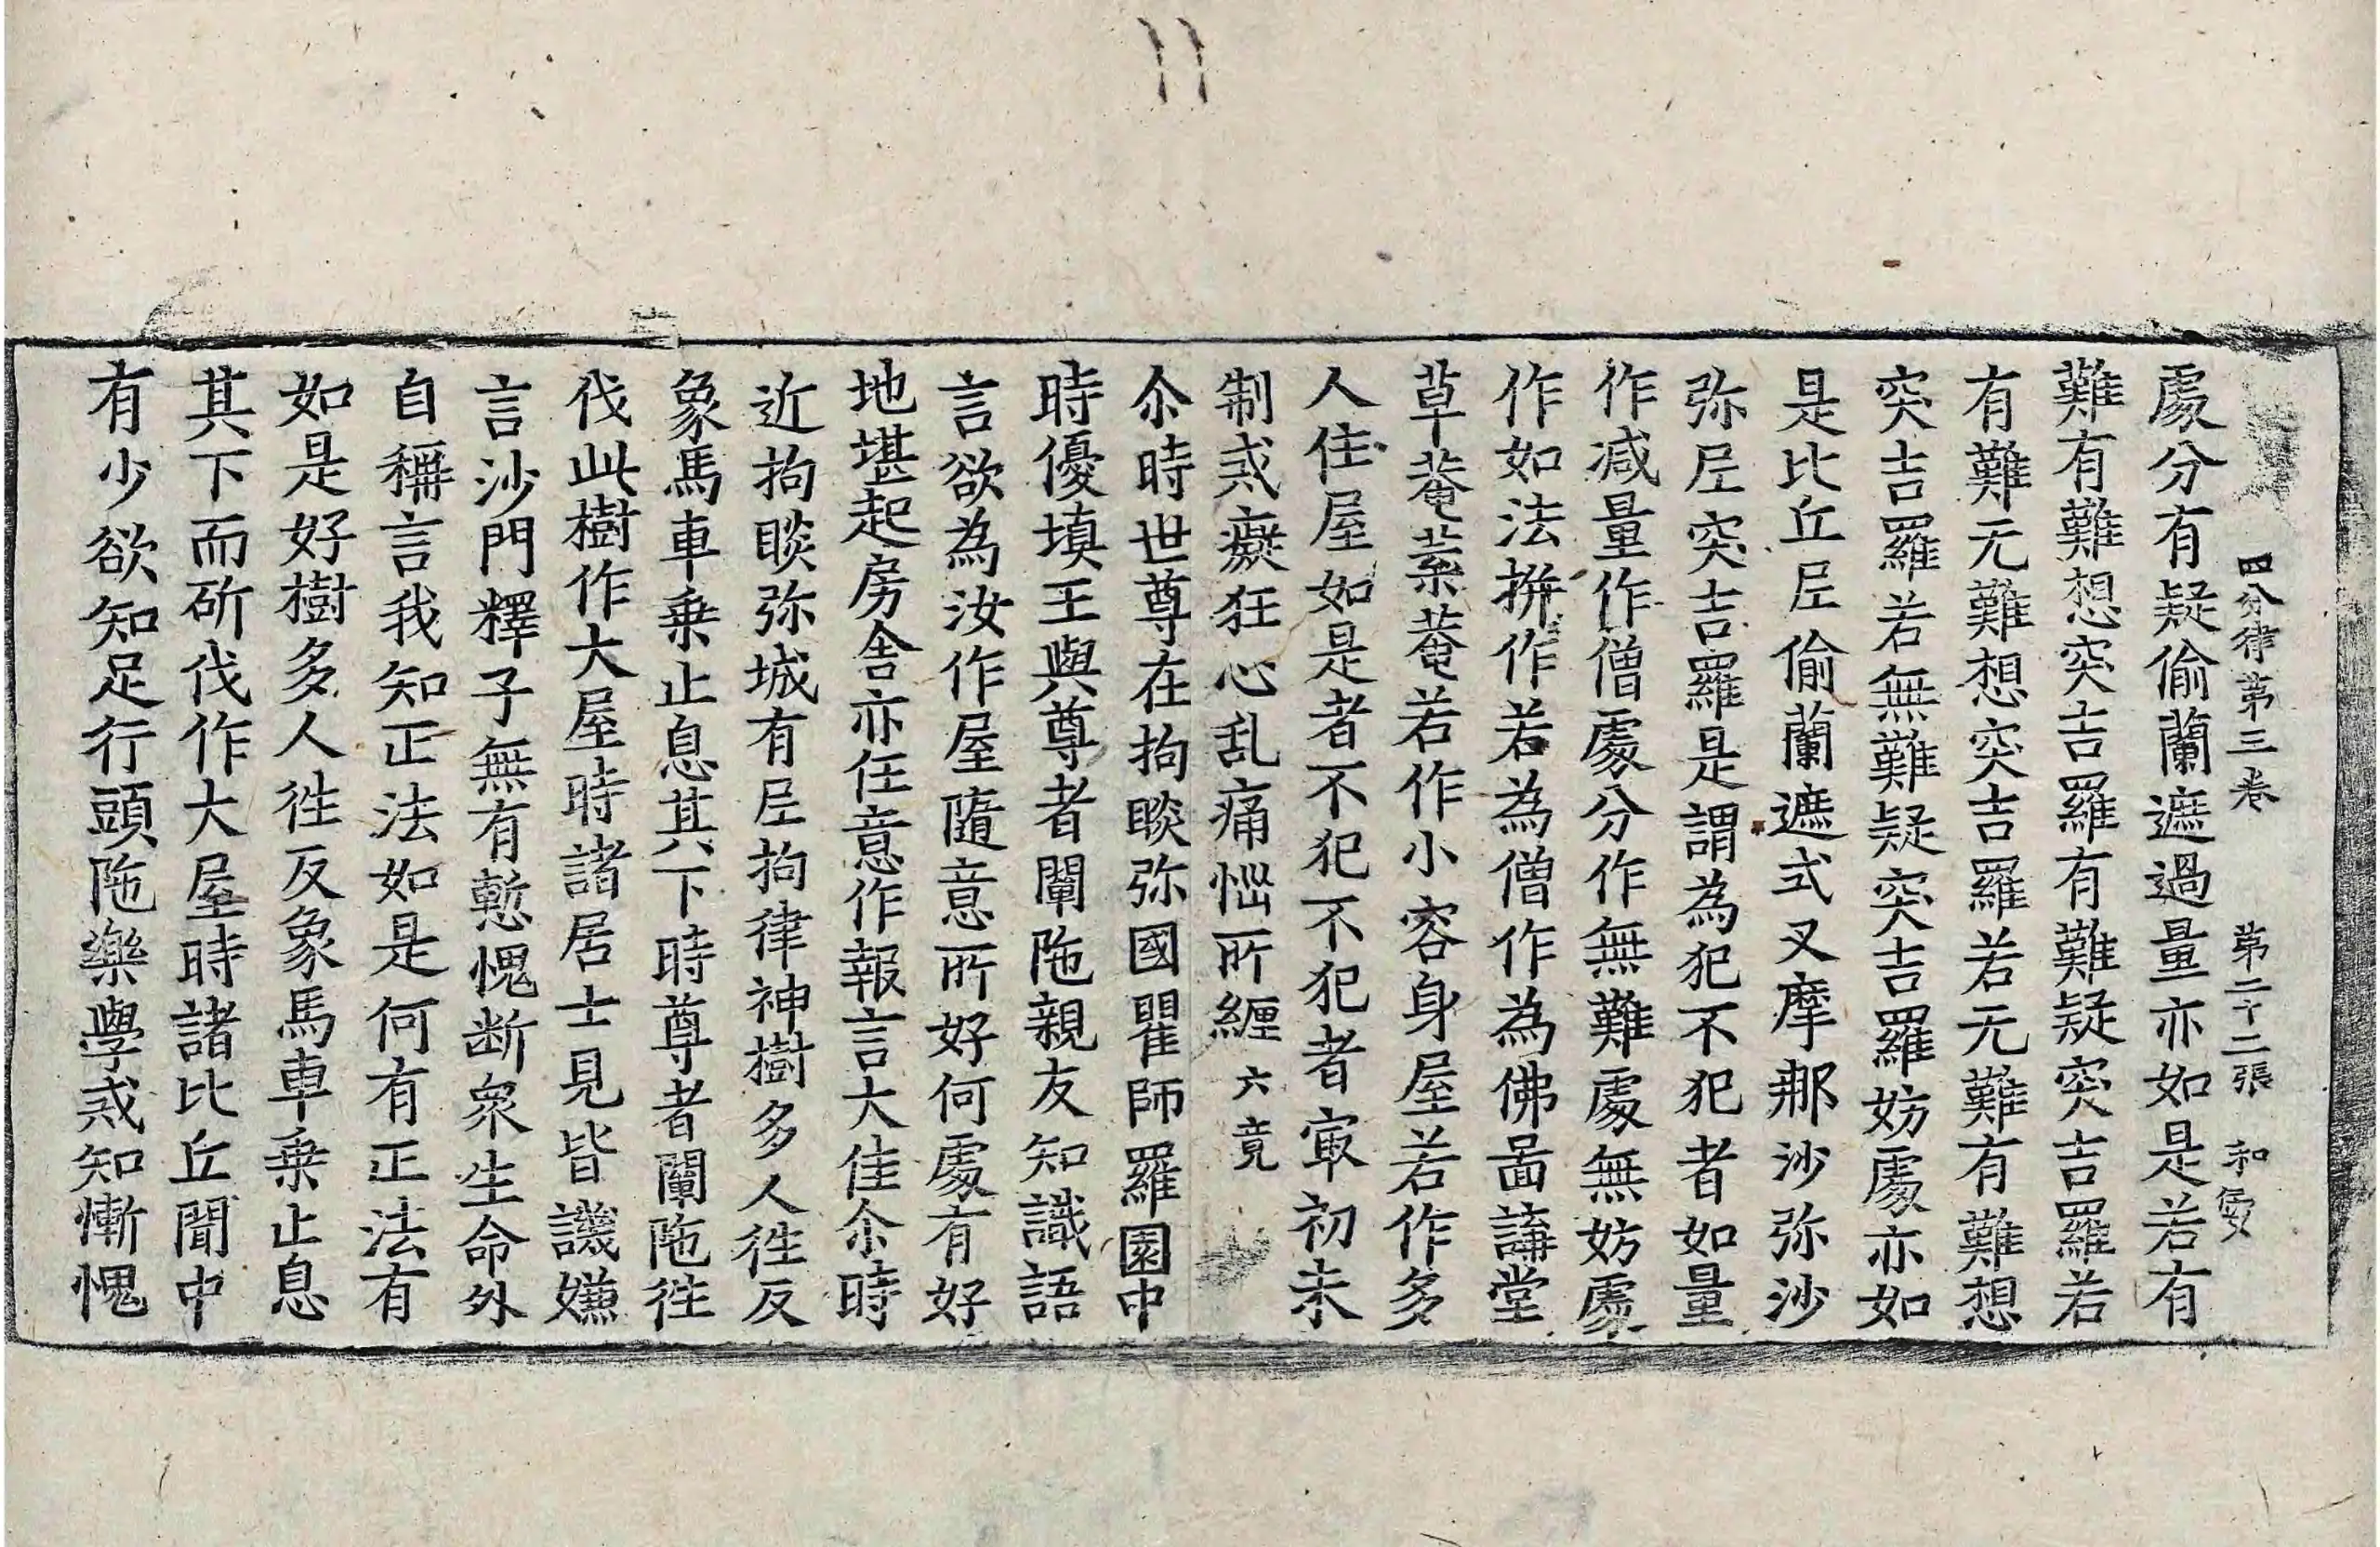 四分律第三卷　第二十二張　和
處分有疑偷蘭遮過量亦如是若有
難有難想突吉羅有難疑突吉羅若
有難无難想突吉羅若无難有難想
突吉羅若無難疑突吉羅妨處亦如
是比丘尼偷蘭遮式叉摩那沙弥沙
弥尼突吉羅是謂為犯不犯者如量
作减量作僧處分作無難處無妨處
作如法拼作若為僧作為佛啚講堂
草菴葉菴若作小容身屋若作多
人住屋如是者不犯不犯者㝡初未
制戒癡狂心乱痛惱所纏六竟
尒時世尊在拘睒弥國瞿師羅園中
時優填王與尊者闡陁親友知識語
言欲為汝作屋隨意所好何處有好
地堪起房舍亦任意作報言大佳尒時
近拘睒弥城有尼拘律神樹多人徃反
象馬車乗止息其下時尊者闡陁徃
伐此樹作大屋時諸居士見皆譏嫌
言沙門釋子無有慙愧断衆生命外
自稱言我知正法如是何有正法有
如是好樹多人徃反象馬車乗止息
其下而斫伐作大屋時諸比丘聞中
有少欲知足行頭陁樂學戒知慚愧